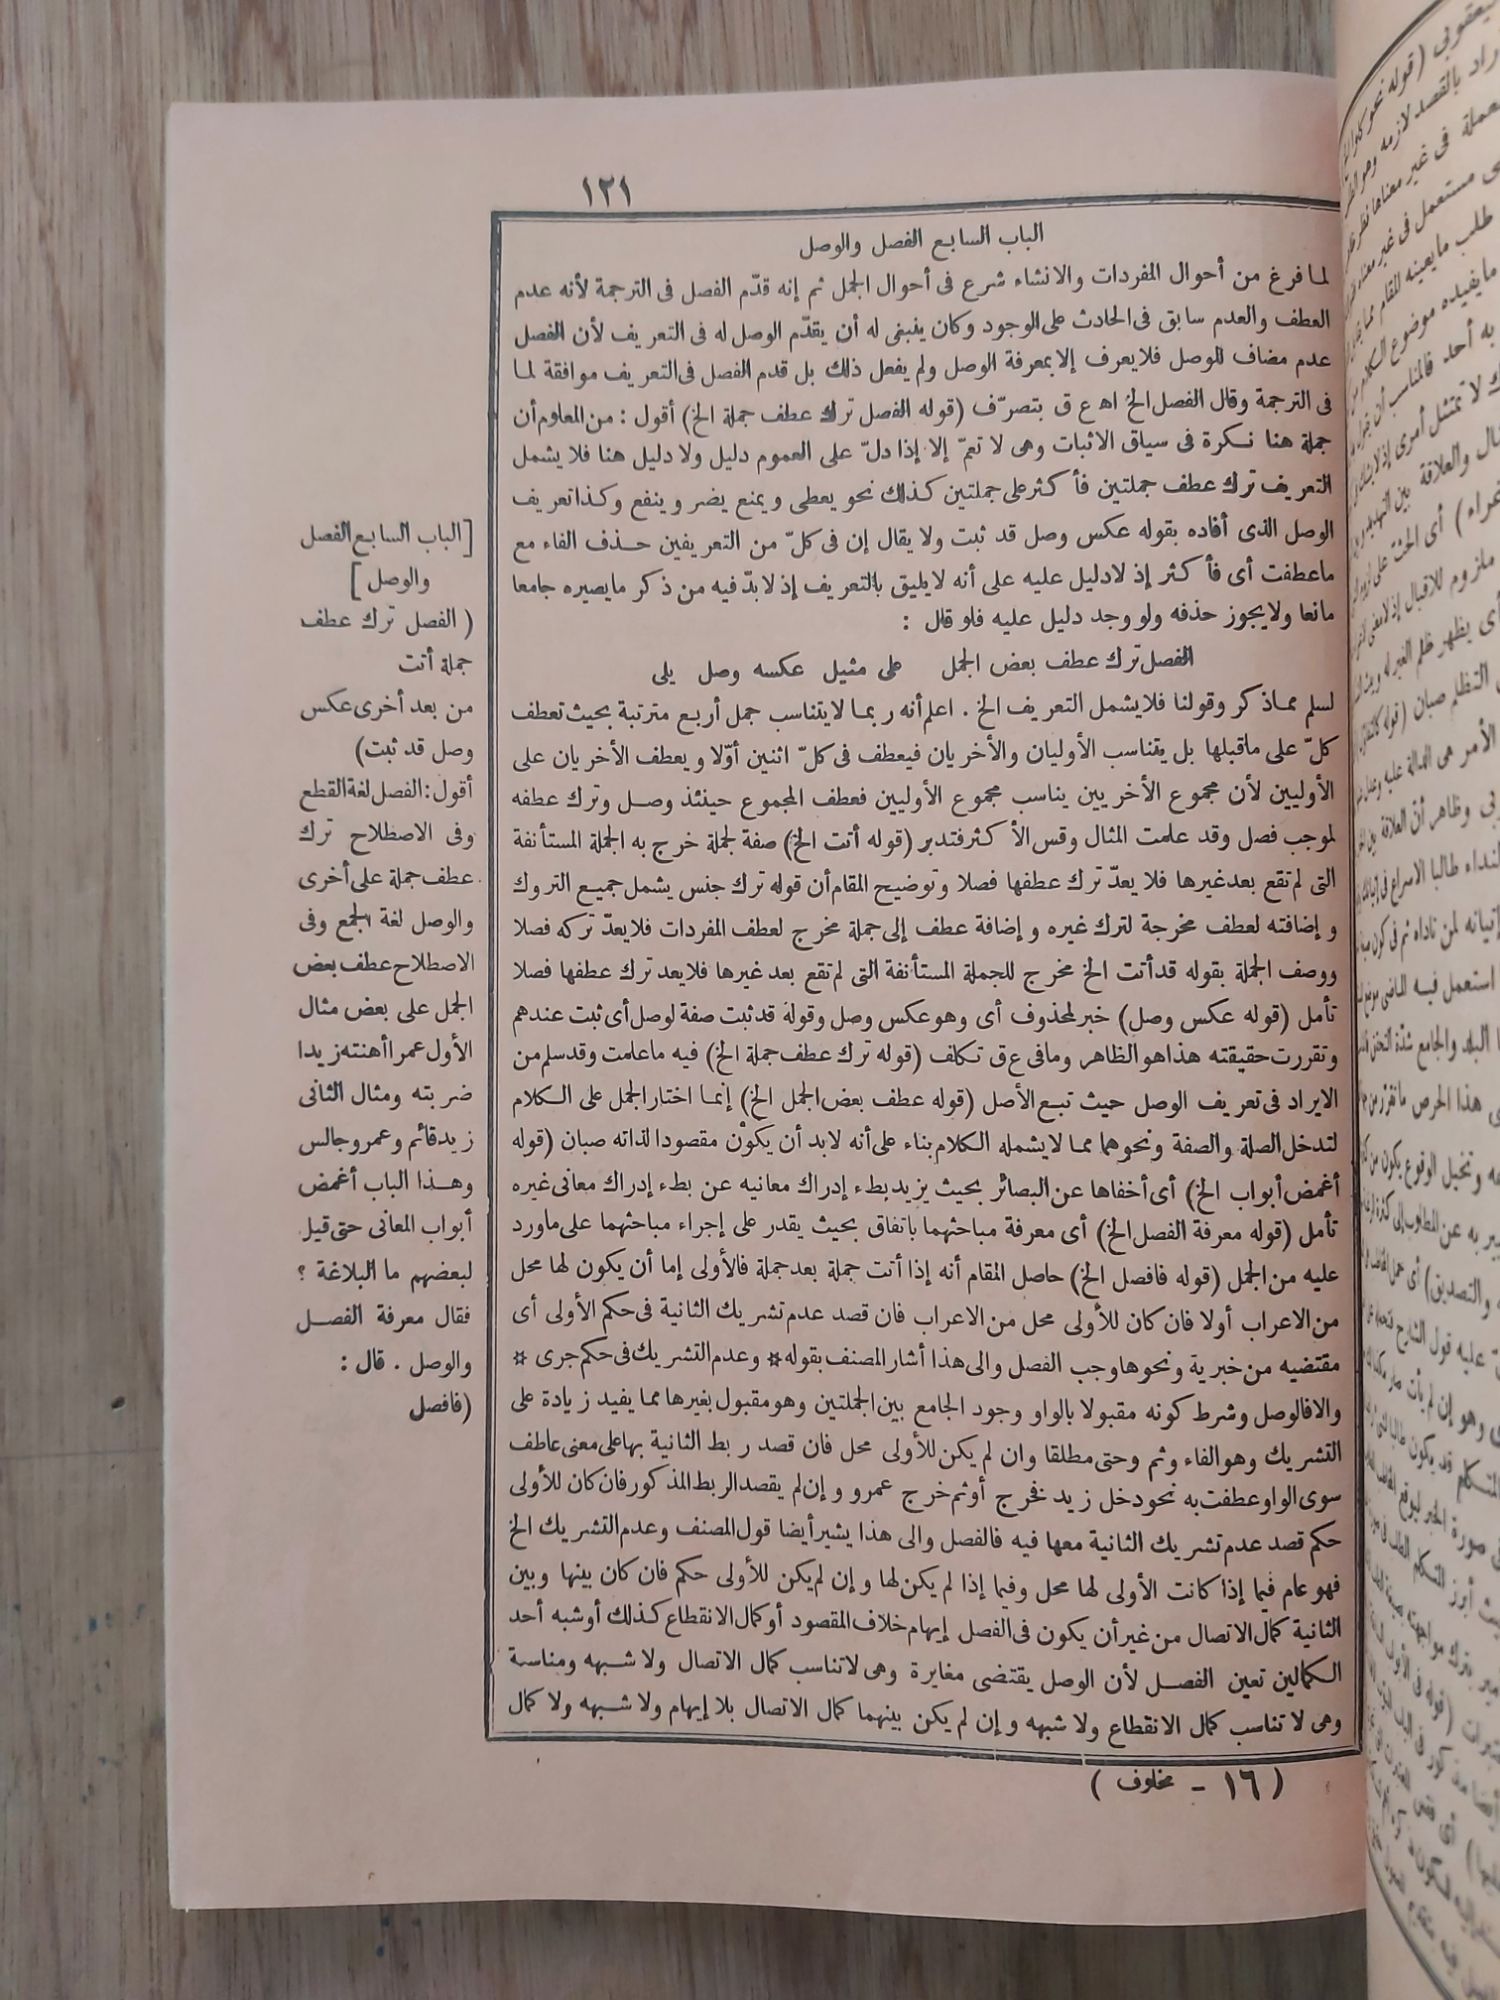 ١٢١
الباب السابع الفصل والوصل
لما فرغ من أحوال المفردات والانشاء شرع فى أحوال الجمل ثم إنه قدّم الفصل فى الترجمة لأنه عدم
العطف والعدم سابق فى الحادث على الوجود وكان ينبغى له أن يقدّم الوصل له فى التعريف لأن الفصل
عدم مضاف للوصل فلا يعرف إلا بمعرفة الوصل ولم يفعل ذلك بل قدم الفصل فى التعريف موافقة لما
فى الترجمة وقال الفصل الخ اه ع ق بتصرّف (قوله الفصل ترك عطف جملة الخ) أقول : من المعلوم أن
جملة هنا نكرة فى سياق الاثبات وهى لا تعمّ إلا إذا دلّ على العموم دليل ولا دليل هنا فلا يشمل
التعريف ترك عطف جملتين فأكثر على جملتين كذلك نحو يعطى ويمنع يضر وينفع وكذا تعريف
الوصل الذى أفاده بقوله عكس وصل قد ثبت ولا يقال إن فى كلّ من التعريفين حذف الفاء مع
ما عطفت أى فأكثر إذ لا دليل عليه على أنه لا يليق بالتعريف إذ لا بدّ فيه من ذكر ما يصيره جامعا
مانعا ولا يجوز حذفه ولو وجد دليل عليه فلو قال :
الفصل ترك عطف بعض الجمل على مثيل عكسه وصل يلى
لسلم مما ذكر وقولنا فلا يشمل التعريف الخ . اعلم أنه ربما لا يتناسب جمل أربع مترتبة بحيث تعطف
كلّ على ما قبلها بل يتناسب الأوليان والأخريان فيعطف فى كلّ اثنين أوّلا ويعطف الأخريان على
الأوليين لأن مجموع الأخريين يناسب مجموع الأوليين فعطف المجموع حينئذ وصل وترك عطفه
لموجب فصل وقد علمت المثال وقس الأكثر فتدبر (قوله أتت الخ) صفة لجملة خرج به الجملة المستأنفة
التى لم تقع بعد غيرها فلا يعدّ ترك عطفها فصلا وتوضيح المقام أن قوله ترك جنس يشمل جميع التروك
وإضافته لعطف مخرجة لترك غيره وإضافة عطف إلى جملة مخرج لعطف المفردات فلا يعدّ تركه فصلا
ووصف الجملة بقوله قد أتت الخ مخرج للجملة المستأنفة التى لم تقع بعد غيرها فلا يعد ترك عطفها فصلا
تأمل (قوله عكس وصل) خبر لمحذوف أى وهو عكس وصل وقوله قد ثبت صفة لوصل أى ثبت عندهم
وتقررت حقيقته هذا هو الظاهر وما فى ع ق تكلف (قوله ترك عطف جملة الخ) فيه ما علمت وقد سلم من
الايراد فى تعريف الوصل حيث تبع الأصل (قوله عطف بعض الجمل الخ) إنما اختار الجمل على الكلام
لتدخل الصلة والصفة ونحوهما مما لا يشمله الكلام بناء على أنه لا بد أن يكون مقصودا لذاته صبان (قوله
أغمض أبواب الخ) أى أخفاها عن البصائر بحيث يزيد بطء إدراك معانيه عن بطء إدراك معانى غيره
تأمل (قوله معرفة الفصل الخ) أى معرفة مباحثهما باتفاق بحيث يقدر على إجراء مباحثهما على ما ورد
عليه من الجمل (قوله فافصل الخ) حاصل المقام أنه إذا أتت جملة بعد جملة فالأولى إما أن يكون لها محل
من الاعراب أولا فان كان للأولى محل من الاعراب فان قصد عدم تشريك الثانية فى حكم الأولى أى
مقتضيه من خبرية ونحوها وجب الفصل والى هذا أشار المصنف بقوله * وعدم التشريك فى حكم جرى *
والا فالوصل وشرط كونه مقبولا بالواو وجود الجامع بين الجملتين وهو مقبول بغيرها مما يفيد زيادة على
التشريك وهو الفاء وثم وحتى مطلقا وان لم يكن للأولى محل فان قصد ربط الثانية بها على معنى عاطف
سوى الواو عطفت به نحو دخل زيد فخرج أو ثم خرج عمرو وإن لم يقصد الربط المذكور فان كان للأولى
حكم قصد عدم تشريك الثانية معها فيه فالفصل والى هذا يشير أيضا قول المصنف وعدم التشريك الخ
فهو عام فيما إذا كانت الأولى لها محل وفيما إذا لم يكن لها وإن لم يكن للأولى حكم فان كان بينها وبين
الثانية كمال الاتصال من غير أن يكون فى الفصل إيهام خلاف المقصود أو كمال الانقطاع كذلك أو شبه أحد
الكمالين تعين الفصل لأن الوصل يقتضى مغايرة وهى لا تناسب كمال الاتصال ولا شبهه ومناسبة
وهى لا تناسب كمال الانقطاع ولا شبهه وإن لم يكن بينهما كمال الاتصال بلا إيهام ولا شبهه ولا كمال
(١٦ - مخلوف)
[الباب السابع الفصل
والوصل]
(الفصل ترك عطف
جملة أتت
من بعد أخرى عكس
وصل قد ثبت)
أقول: الفصل لغة القطع
وفى الاصطلاح ترك
عطف جملة على أخرى
والوصل لغة الجمع وفى
الاصطلاح عطف بعض
الجمل على بعض مثال
الأول عمرا أهنته زيدا
ضربته ومثال الثانى
زيد قائم وعمرو جالس
وهذا الباب أغمض
أبواب المعانى حتى قيل
لبعضهم ما البلاغة ؟
فقال معرفة الفصل
والوصل . قال :
(فافصل